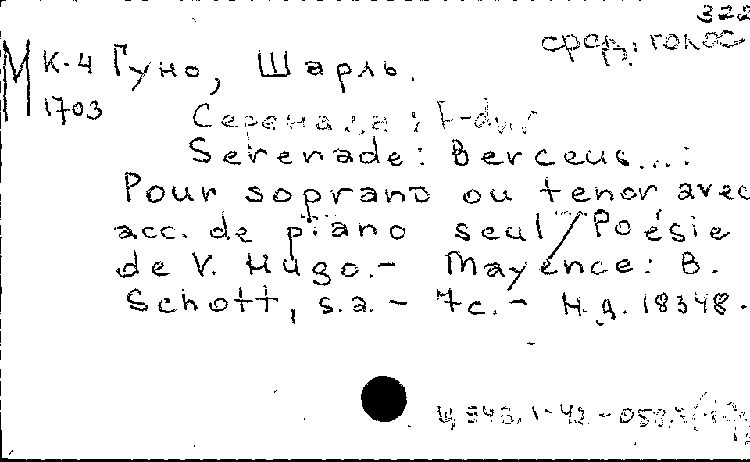 322
сред. голос
М К-4 Гуно, Шарль.
1703
Серенада: F-dur
Serenade: Berceus...:
Pour soprano ou tenor avec
acc. de piano seul / Poésie
de V. Hugo. - Mayence: B.
Schott, s.a. - 7 c. - Н.д. 18348.